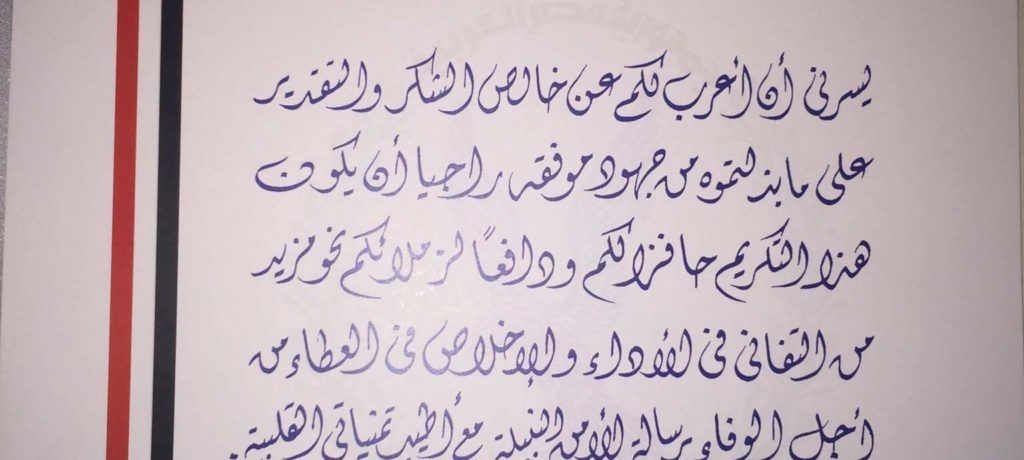 جمهورية مصر العربية
يسرنى أن أعرب لكم عن خالص الشكر والتقدير
على ما بذلتموه من جهود موفقه راجيا أن يكون
هذا التكريم حافزا لكم ودافعًا لزملائكم نحو مزيد
من التفانى فى الأداء والإخلاص فى العطاء من
أجل الوفاء برسالة الأمن النبيلة مع أطيب تمنياتى القلبية.